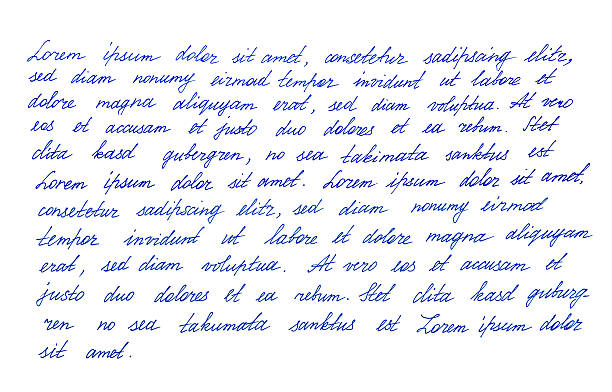 Lorem ipsum dolor sit amet, consetetur sadipscing elitr,
sed diam nonumy eirmod tempor invidunt ut labore et
dolore magna aliquyam erat, sed diam voluptua. At vero
eos et accusam et justo duo dolores et ea rebum. Stet
clita kasd gubergren, no sea takimata sanktus est
Lorem ipsum dolor sit amet. Lorem ipsum dolor sit amet,
consetetur sadipscing elitr, sed diam nonumy eirmod
tempor invidunt ut labore et dolore magna aliquyam
erat, sed diam voluptua. At vero eos et accusam et
justo duo dolores et ea rebum. Stet clita kasd guberg-
ren no sea takumata sanktus est Lorem ipsum dolor
sit amet.